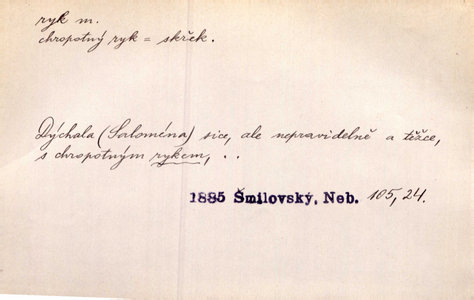 ryk m.
chropotný ryk = skřek.
Dýchala (Saloména) sice, ale nepravidelně a těžce,
s chropotným rykem, . .
1885 Šmilovský, Neb. 105, 24.